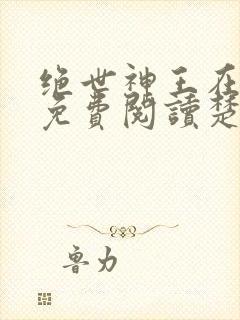 绝世神王在
免費閱讀楚
鲁力